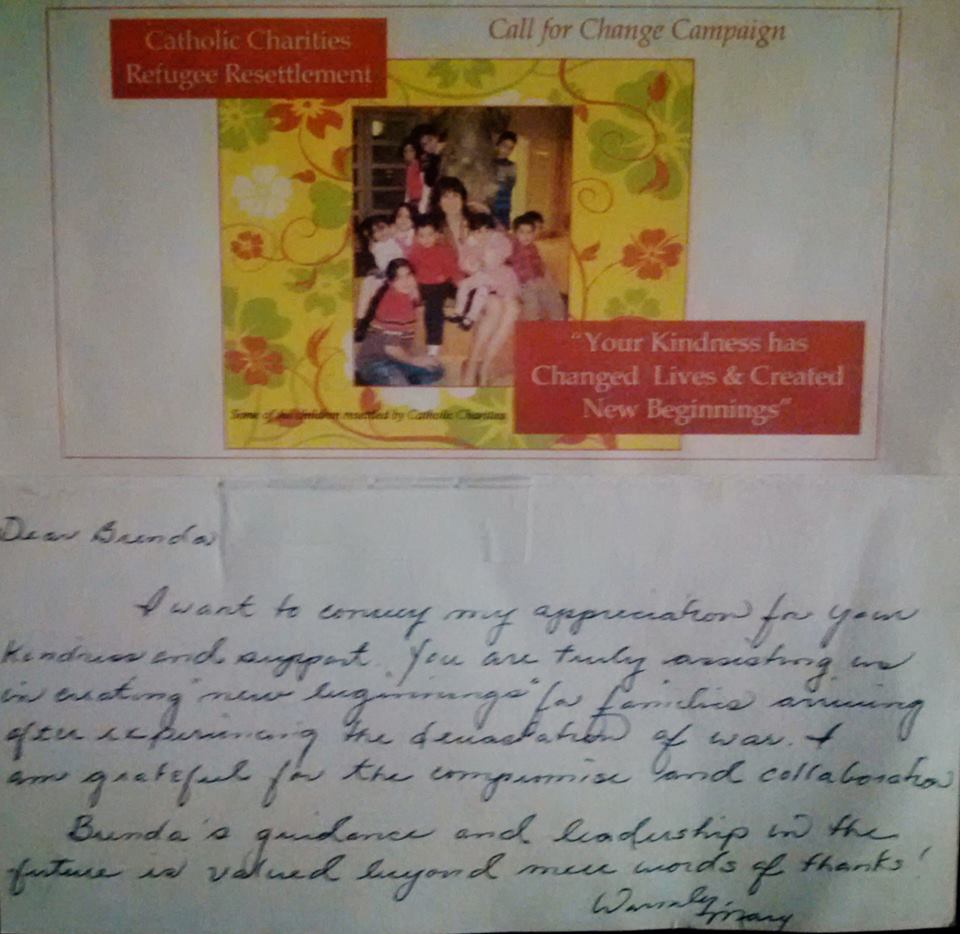 Catholic Charities
Refugee Resettlement
Call for Change Campaign
"Your Kindness has
Changed Lives & Created
New Beginnings"
Some of the children resettled by Catholic Charities
Dear Brenda
I want to convey my appreciation for your
kindness and support. You are truly assisting us
in creating "new beginnings" for families arriving
after experiencing the devastation of war. I
am grateful for the compromise and collaboration
Brenda's guidance and leadership in the
future is valued beyond mere words of thanks!
Warmly,
Mary